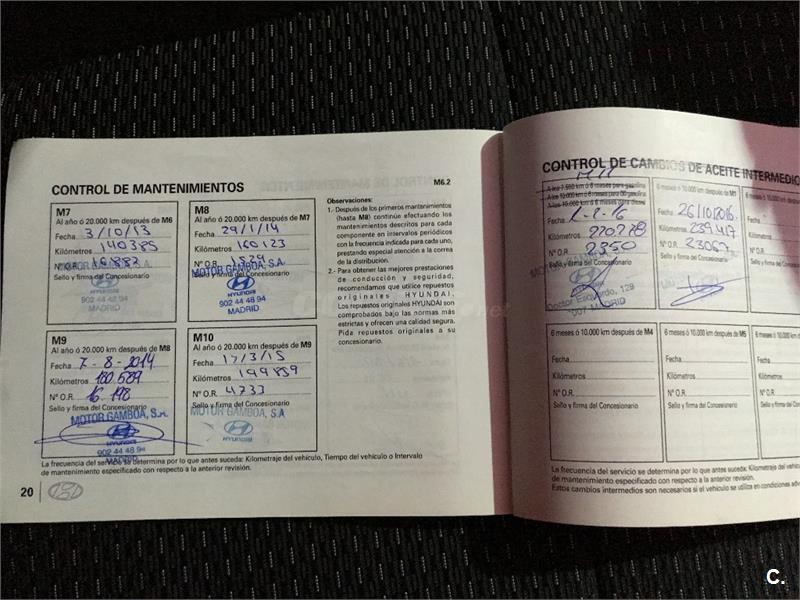 CONTROL DE MANTENIMIENTOS
M6.2
M7
Al año ó 20.000 km después de M6
Fecha 3/10/13
Kilómetros 140385
Nº O.R.
Sello y firma del Concesionario
HYUNDAI
902 44 48 94
MADRID
M8
Al año ó 20.000 km después de M7
Fecha 29/1/14
Kilómetros 160123
Nº O.R. 1529
Sello y firma del Concesionario
MOTOR GAMBOA, S.A.
HYUNDAI
902 44 48 94
MADRID
Observaciones:
1.- Después de los primeros mantenimientos
(hasta M8) continúe efectuando los
mantenimientos descritos para cada
componente en intervalos periódicos
con la frecuencia indicada para cada uno,
prestando especial atención a la correa
de la distribución.
2.- Para obtener las mejores prestaciones
de conducción y seguridad,
recomendamos que utilice repuestos
originales HYUNDAI.
Los repuestos originales HYUNDAI son
comprobados bajo las normas más
estrictas y ofrecen una calidad segura.
Pida repuestos originales a su
concesionario.
M9
Al año ó 20.000 km después de M8
Fecha 7-8-2014
Kilómetros 180.589
Nº O.R. 16.198
Sello y firma del Concesionario
MOTOR GAMBOA, S.A.
HYUNDAI
902 44 48 94
MADRID
M10
Al año ó 20.000 km después de M9
Fecha 17/3/15
Kilómetros 199859
Nº O.R. 4733
Sello y firma del Concesionario
MOTOR GAMBOA, S.A
HYUNDAI
La frecuencia del servicio se determina por lo que antes suceda: Kilometraje del vehículo, Tiempo del vehículo o Intervalo
de mantenimiento especificado con respecto a la anterior revisión.
20
CONTROL DE CAMBIOS DE ACEITE INTERMEDIO
M11
A los 7.500 km ó 6 meses para gasolina
Fecha 1-2-16
Kilómetros 220778
Nº O.R. 2350
Sello y firma del Concesionario
Doctor Esquerdo, 129
MADRID
6 meses ó 10.000 km después de M1
Fecha 26/10/2016
Kilómetros 239417
Nº O.R. 23067
Sello y firma del Concesionario
6 meses ó 10.000 km después de M4
Fecha
Kilómetros
Nº O.R.
Sello y firma del Concesionario
6 meses ó 10.000 km después de M5
Fecha
Kilómetros
Nº O.R.
Sello y firma del Concesionario
La frecuencia del servicio se determina por lo que antes suceda: Kilometraje del
de mantenimiento especificado con respecto a la anterior revisión.
Estos cambios intermedios son necesarios si el vehículo se utiliza en condiciones
C.